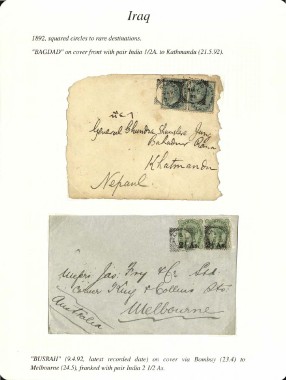 Iraq
1892, squared circles to rare destinations.
"BAGDAD" on cover front with pair India 1/2A. to Kathmandu (21.5.92).
General Chundra Shamsher Jung
Bahadur Rana
Khatmandu
Nepaul
Messrs Jas. Troy & Co Ltd
Corner King & Collins Sts
Melbourne
Australia
"BUSRAH" (9.4.92, latest recorded date) on cover via Bombay (23.4) to
Melbourne (24.5), franked with pair India 2 1/2 As.